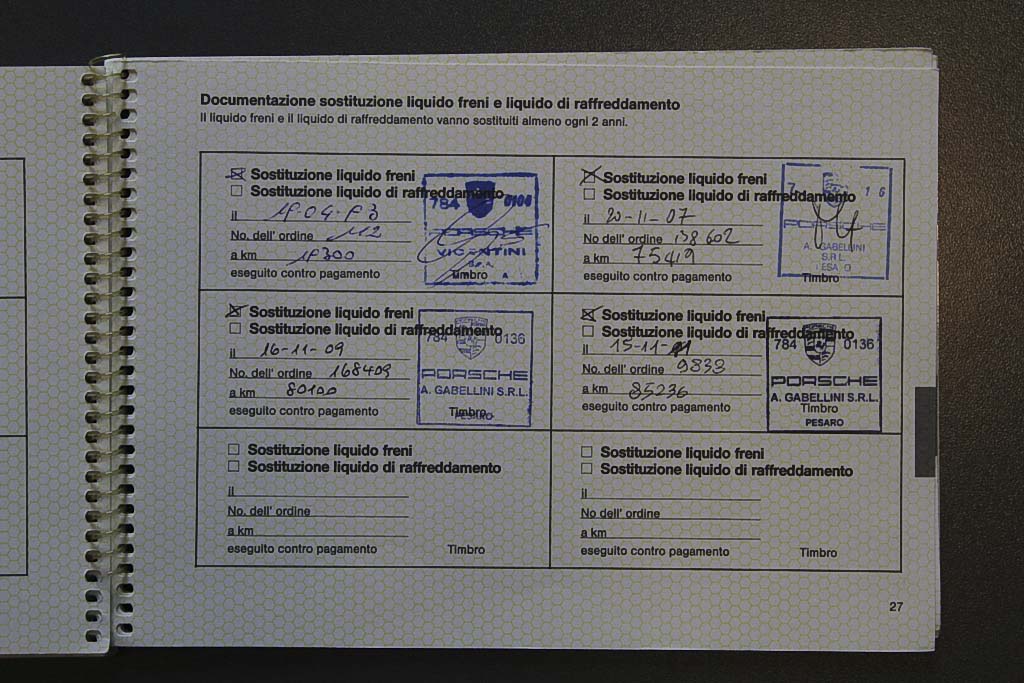 Documentazione sostituzione liquido freni e liquido di raffreddamento
Il liquido freni e il liquido di raffreddamento vanno sostituiti almeno ogni 2 anni.
Sostituzione liquido freni
Sostituzione liquido di raffreddamento
il
No. dell' ordine 112
a km
eseguito contro pagamento
Timbro
784 0106
PORSCHE
VICENTINI
S.p.A.
Sostituzione liquido freni
Sostituzione liquido di raffreddamento
il 20-11-07
No dell' ordine 138602
a km 75419
eseguito contro pagamento
Timbro
PORSCHE
A. GABELLINI
S.R.L.
Sostituzione liquido freni
Sostituzione liquido di raffreddamento
il 16-11-09
No. dell' ordine 168409
a km 80100
eseguito contro pagamento
Timbro
784 0136
PORSCHE
A. GABELLINI S.R.L.
PESARO
Sostituzione liquido freni
Sostituzione liquido di raffreddamento
il 15-11-11
No. dell' ordine 9833
a km 85236
eseguito contro pagamento
Timbro
784 0136
PORSCHE
A. GABELLINI S.R.L.
PESARO
Sostituzione liquido freni
Sostituzione liquido di raffreddamento
il
No. dell' ordine
a km
eseguito contro pagamento
Timbro
Sostituzione liquido freni
Sostituzione liquido di raffreddamento
il
No dell' ordine
a km
eseguito contro pagamento
Timbro
27